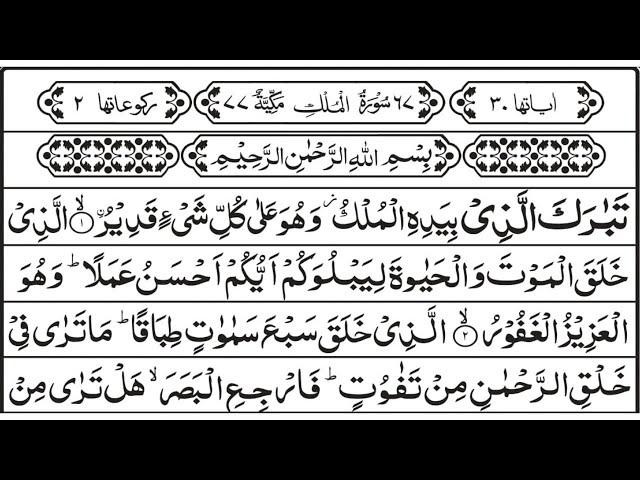 اٰیاتها ٣٠ ٦٧ سُوْرَةُ الْمُلْكِ مَكِّیَّةٌ ٧٧ رکوعاتها ٢
بِسْمِ اللّٰهِ الرَّحْمٰنِ الرَّحِیْمِ
تَبٰرَكَ الَّذِیْ بِیَدِهِ الْمُلْكُ ز وَهُوَ عَلٰی كُلِّ شَیْءٍ قَدِیْرُ ۙ﴿١﴾ الَّذِیْ
خَلَقَ الْمَوْتَ وَالْحَیٰوةَ لِیَبْلُوَكُمْ اَیُّكُمْ اَحْسَنُ عَمَلًا ؕ وَهُوَ
الْعَزِیْزُ الْغَفُوْرُ ۙ﴿٢﴾ الَّذِیْ خَلَقَ سَبْعَ سَمٰوٰتٍ طِبَاقًا ؕ مَا تَرٰی فِیْ
خَلْقِ الرَّحْمٰنِ مِنْ تَفٰوُتٍ ؕ فَارْجِعِ الْبَصَرَ ۙ هَلْ تَرٰی مِنْ